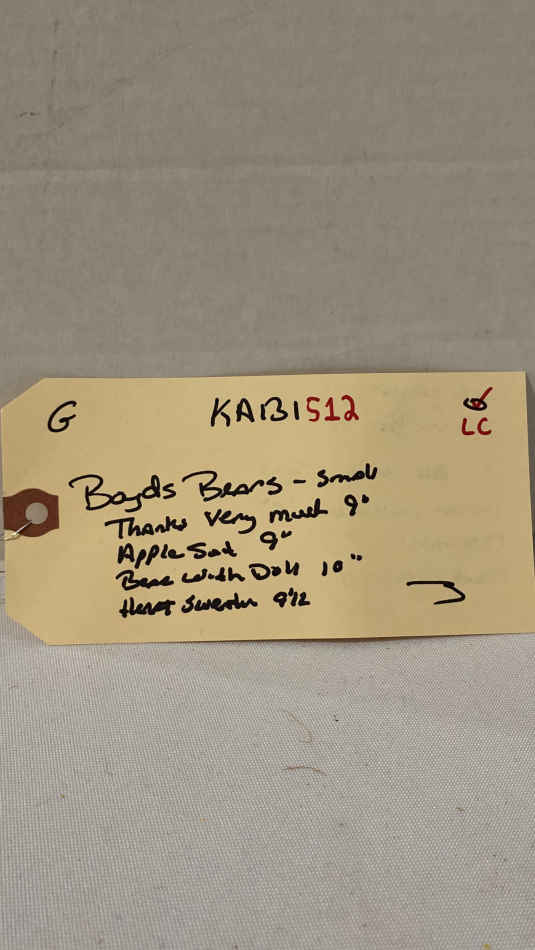 G KAB1512
LC
Boyds Bears - Small
Thanks Very much 9"
Apple Seat 9"
Bear with Doll 10"
Heart Sweater 9 1/2